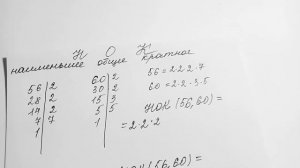 Н О К
наименьшее общее кратное
56 | 2 60 | 2 56=2·2·2·7
28 | 2 30 | 2 60=2·2·3·5
14 | 2 15 | 3 НОК(56,60)=
7 | 7 5 | 5
1 | 1 | =2·2·2
НОК(56,60)=